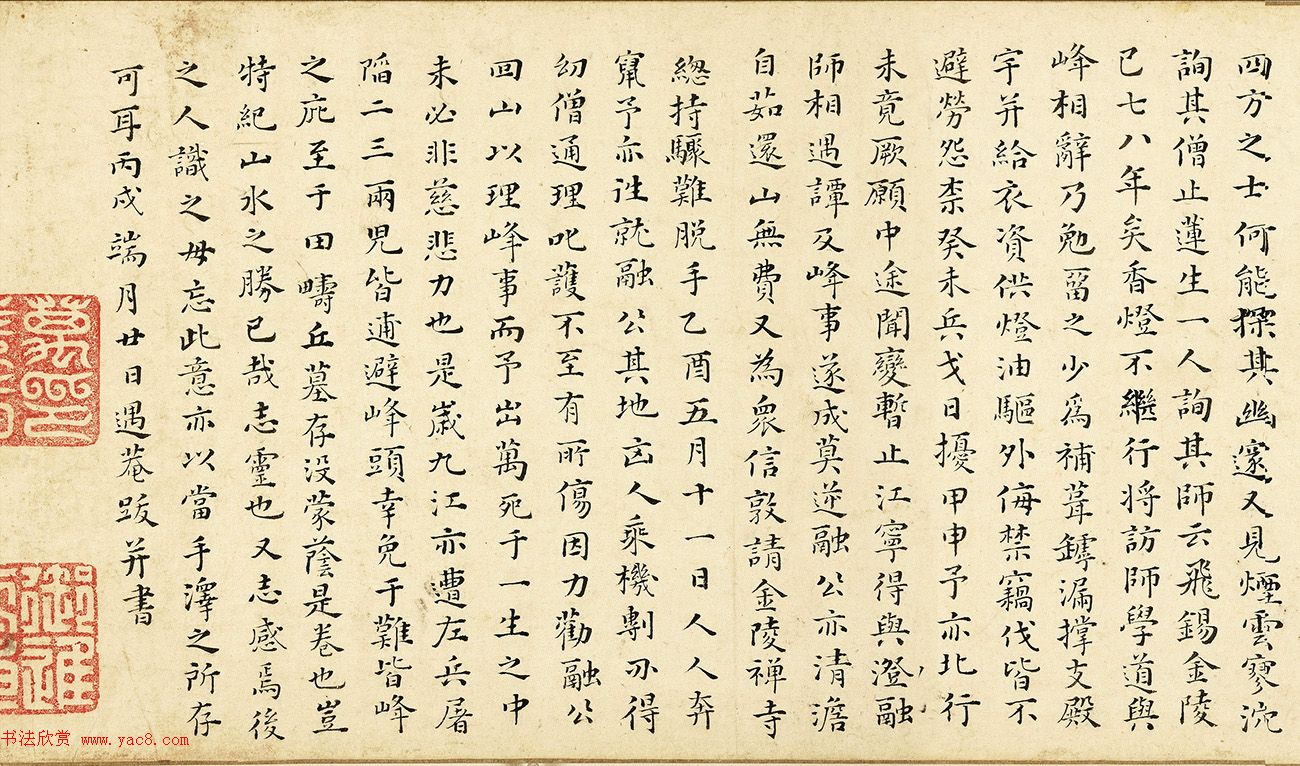 四方之士何能探其幽邃又見煙雲寥泬
詢其僧止蓮生一人詢其師云飛錫金陵
已七八年矣香燈不繼行將訪師學道與
峰相辭乃勉留之少為補葺鏬漏撐支殿
宇并給衣資供燈油驅外侮禁竊伐皆不
避勞怨柰癸未兵戈日擾甲申予亦北行
未竟厥願中途聞變暫止江寧得與澄融
師相遇譚及峰事遂成莫逆融公亦清澹
自茹還山無費又為眾信敦請金陵禅寺
總持驟難脱手乙酉五月十一日人人奔
竄予亦往就融公其地亡人乘機剸刅得
幼僧通理叱護不至有所傷因力勸融公
回山以理峰事而予出萬死于一生之中
未必非慈悲力也是嵗九江亦遭左兵屠
䧟二三兩児皆逋避峰頭幸免于難皆峰
之庇至于田疇丘墓存没蒙蔭是卷也豈
特紀山水之勝已哉志靈也又志感焉後
之人識之毋忘此意亦以當手澤之所存
可耳丙戌端月廿日遇菴跋并書
书法欣赏 www.yac8.com